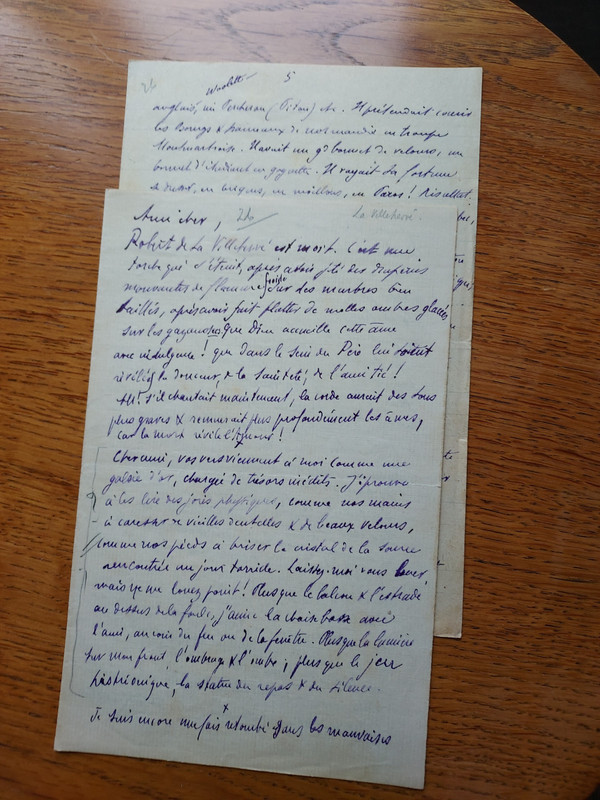 5
anglais, un Percheron (Titan) etc. Il prétendait courir
les Bourgs & hameaux de Normandie en troupe
Montmartroise. Il avait un gd bonnet de velours, un
bonnet d'étudiant en goguette. Il voyait la fortune
se dresser, en briques, en meubles, en Paros! Résultat:
Ami cher,
La Villehervé.
Robert de La Villehervé est mort. C'est une
torche qui s'éteint, après avoir jeté des draperies
mouvantes de flamme froide sur des marbres bien
taillés, après avoir fait flotter de molles ombres glacées
sur les gazons. Que Dieu accueille cette âme
avec indulgence! que dans le sein du Père lui soient
révélés la douceur, & la sainteté, de l'amitié!
Ah! s'il chantait maintenant, la corde aurait des sons
plus graves & remuerait plus profondément les âmes,
car la mort révèle l'Amour!
Cher ami, vos vers viennent à moi comme une
galère d'or, chargée de trésors inédits. J'éprouve
à les lire des joies physiques, comme nos mains
à caresser de vieilles dentelles & de beaux velours,
comme nos pieds à briser le cristal de la source
rencontrée un jour torride. Laissez-moi vous louer,
mais ne me louez point! Plus que le balcon & l'estrade
au dessus de la foule, j'aime la chaise basse avec
l'ami, au coin du feu ou de la fenêtre. Plus que la lumière
sur mon front, l'ombrage & l'ombre; plus que le jeu
histrionique, la statue du repos & du silence.
Je suis encore une fois retombé dans les mauvaises